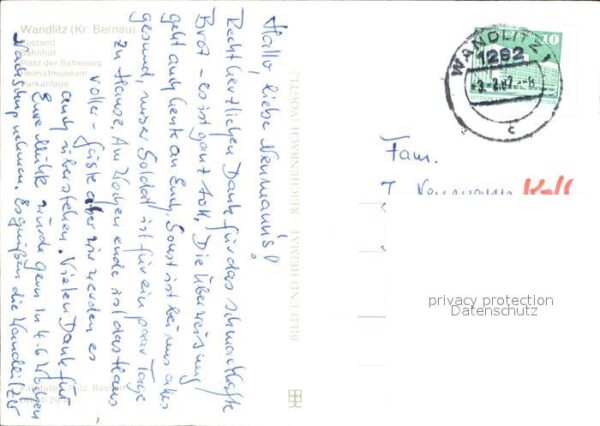 Wandlitz (Kr. Bernau)
Postamt
Bahnhof
Platz der Befreiung
Heimatmuseum
Parkanlage
Hallo, liebe Neumann's!
Recht herzlichen Dank für das schmackhafte
Brot - es ist ganz toll. Die Überweisung
geht auch heute an Euch. Sonst ist bei uns alles
gesund, unser Soldat ist für ein paar Tage
zu Hause. Am Wochenende ist das Haus
voller Gäste aber wir werden es
auch überstehen. Vielen Dank für
Eure Mühe, würde gern in 4-6 Wochen
Nachschub nehmen. Es grüßen die Wandlitzer
BILD UND HEIMAT REICHENBACH (VOGTL)
WANDLITZ 1
1292
-3.-2.87.--8
c
10
Fam.
Neumann
privacy protection
Datenschutz